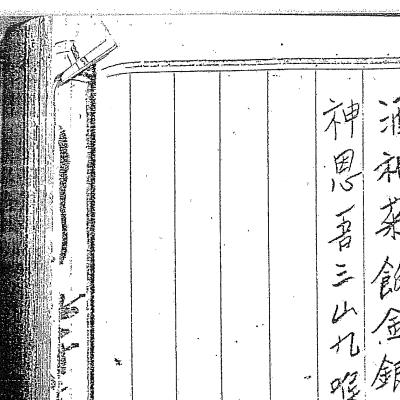 酒神菜飯金銀
神恩吾三山九喉